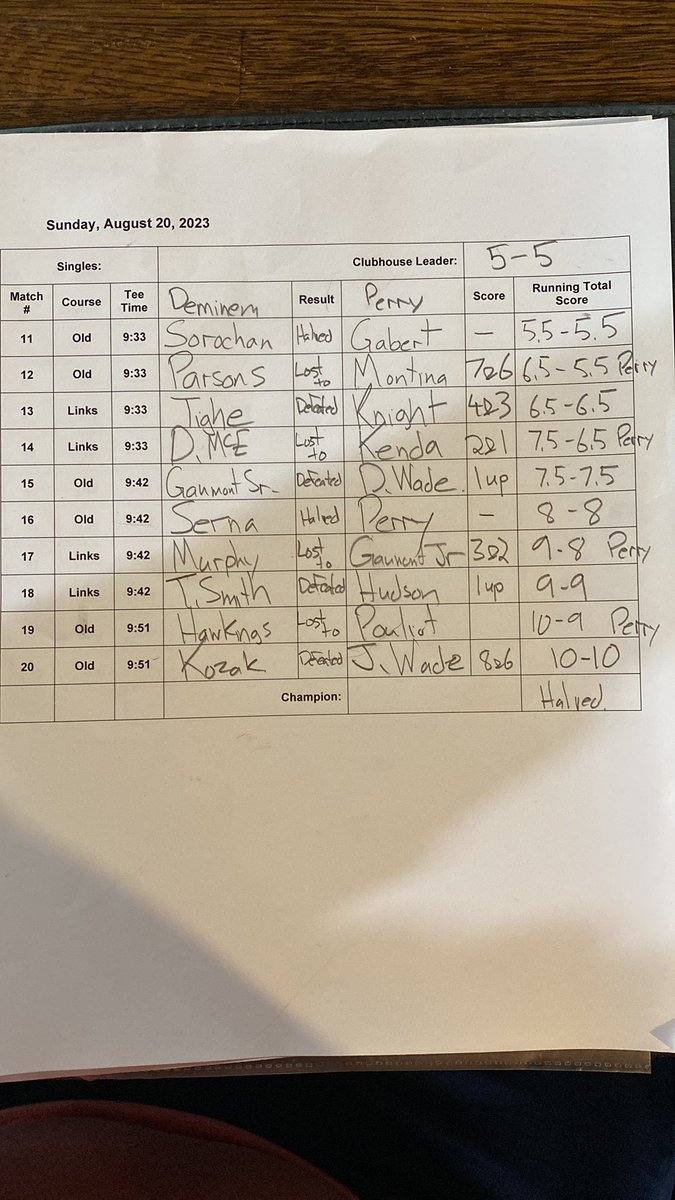 Sunday, August 20, 2023
Singles: Clubhouse Leader: 5-5
Match # Course Tee Time Deminem Result Perry Score Running Total Score
11 Old 9:33 Sorochan Halved Gabert - 5.5-5.5
12 Old 9:33 Parsons Lost to Montina 7&6 6.5-5.5 Perry
13 Links 9:33 Tighe Defeated Knight 4&3 6.5-6.5
14 Links 9:33 D. McE Lost to Kenda 2&1 7.5-6.5 Perry
15 Old 9:42 Gaumont Sr. Defeated D. Wade 1up 7.5-7.5
16 Old 9:42 Serna Halved Perry - 8-8
17 Links 9:42 Murphy Lost to Gaumont Jr 3&2 9-8 Perry
18 Links 9:42 T. Smith Defeated Hudson 1up 9-9
19 Old 9:51 Hawkings Lost to Pouliot 10-9 Perry
20 Old 9:51 Kozak Defeated J. Wade 8&6 10-10
Champion: Halved